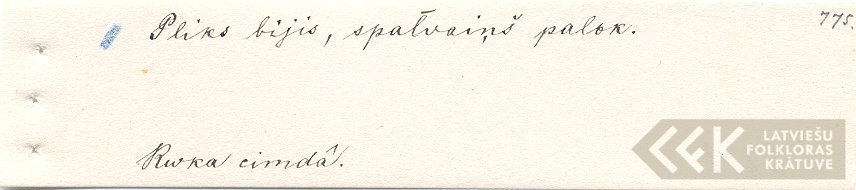 Pliks bijis, spalvaiņš palok.
775.
Roka cimdâ.
LFK
LATVIEŠU
FOLKLORAS
KRĀTUVE